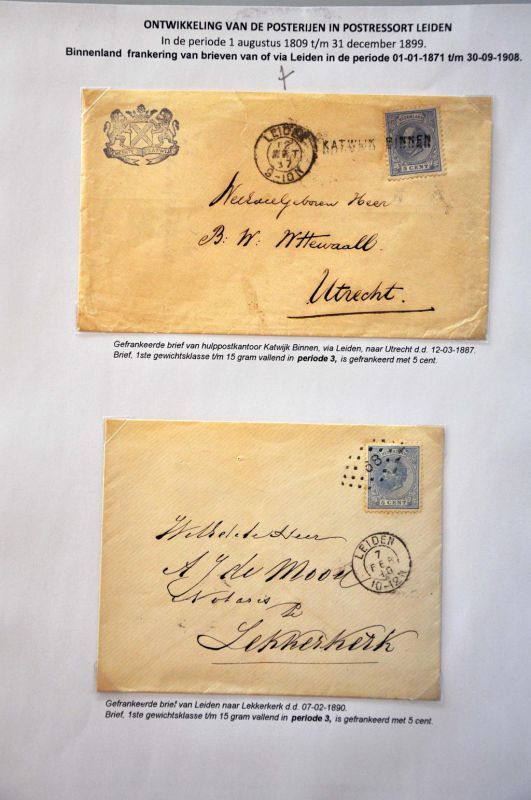 ONTWIKKELING VAN DE POSTERIJEN IN POSTRESSORT LEIDEN
In de periode 1 augustus 1809 t/m 31 december 1899.
Binnenland frankering van brieven van of via Leiden in de periode 01-01-1871 t/m 30-09-1908.
LEIDEN
12
MRT
8-10N
KATWIJK BINNEN
5 CENT
WelEdelGeboren Heer
B. W. Wttewaall.
Utrecht.
Gefrankeerde brief van hulppostkantoor Katwijk Binnen, via Leiden, naar Utrecht d.d. 12-03-1887.
Brief, 1ste gewichtsklasse t/m 15 gram vallend in periode 3, is gefrankeerd met 5 cent.
68
5 CENT
LEIDEN
7
FEB
90
10-12N
WelEd. de Heer
A J de Mooy
Notaris
te
Lekkerkerk
Gefrankeerde brief van Leiden naar Lekkerkerk d.d. 07-02-1890.
Brief, 1ste gewichtsklasse t/m 15 gram vallend in periode 3, is gefrankeerd met 5 cent.